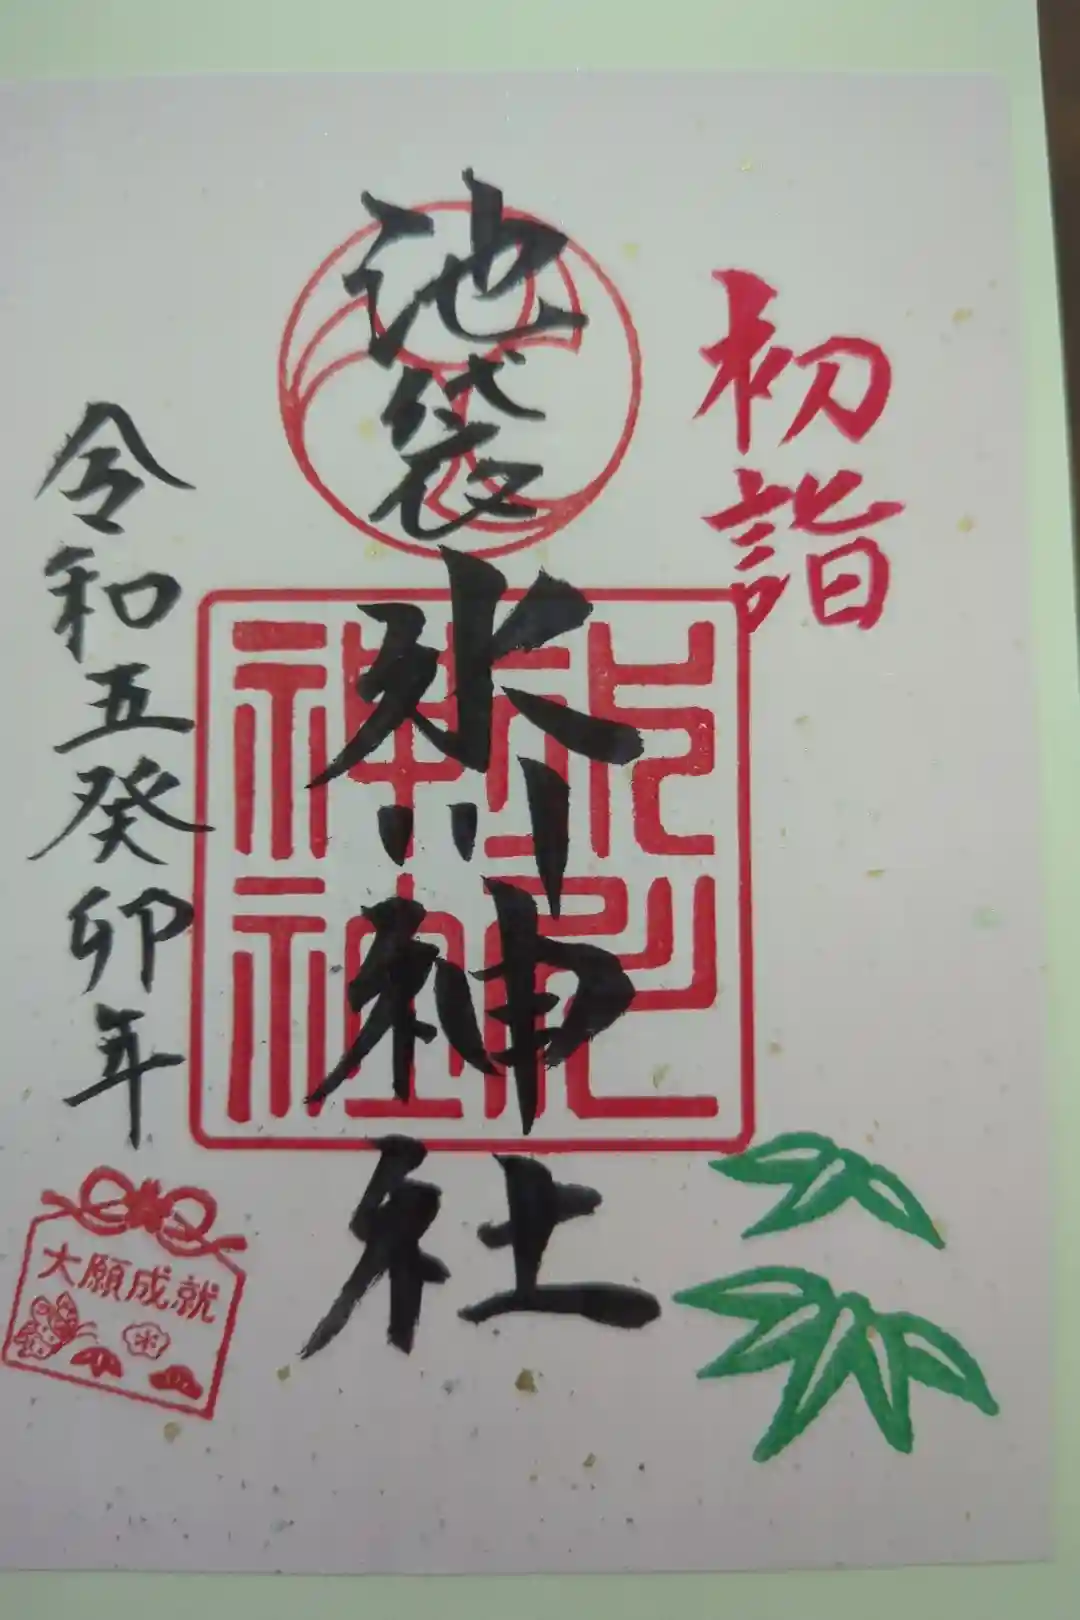 初詣
池袋氷川神社
氷川
神社
令和五癸卯年
大願成就